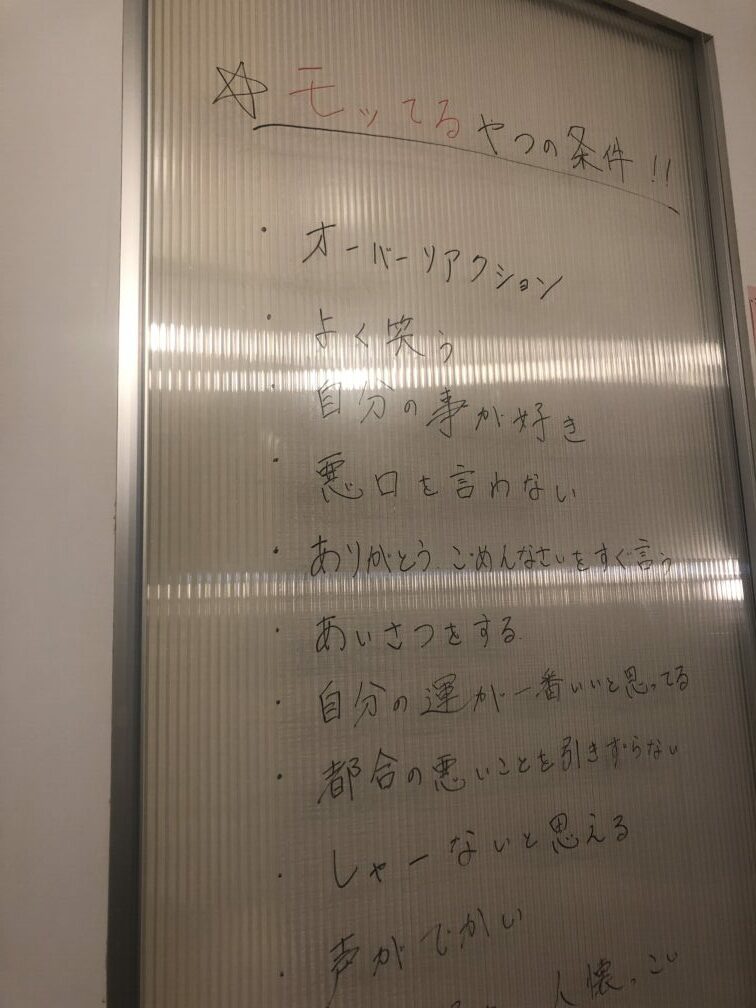 ☆ モッてるやつの条件!!
・オーバーリアクション
・よく笑う
・自分の事が好き
・悪口を言わない
・ありがとう、ごめんなさいをすぐ言う
・あいさつをする
・自分の運が一番いいと思ってる
・都合の悪いことを引きずらない
・しゃーないと思える
・声がでかい
人懐っこい